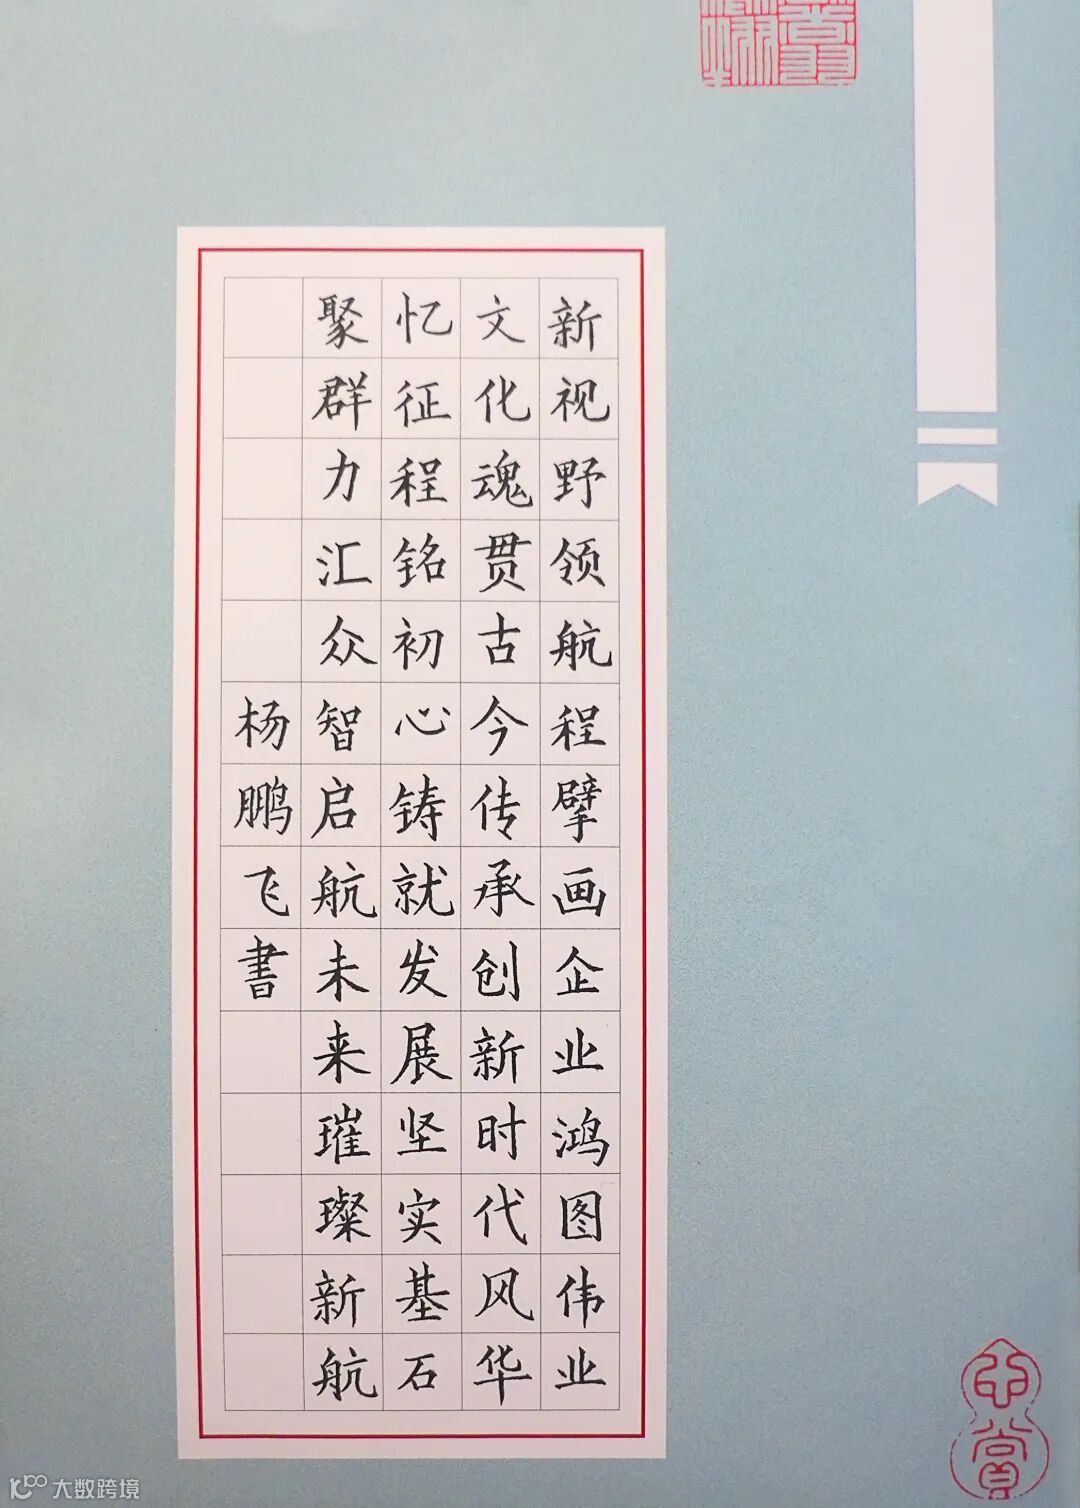 新视野领航程擘画企业鸿图伟业
文化魂贯古今传承创新时代风华
忆征程铭初心铸就发展坚实基石
聚群力汇众智启航未来璀璨新航
杨鹏飞書
大数跨境